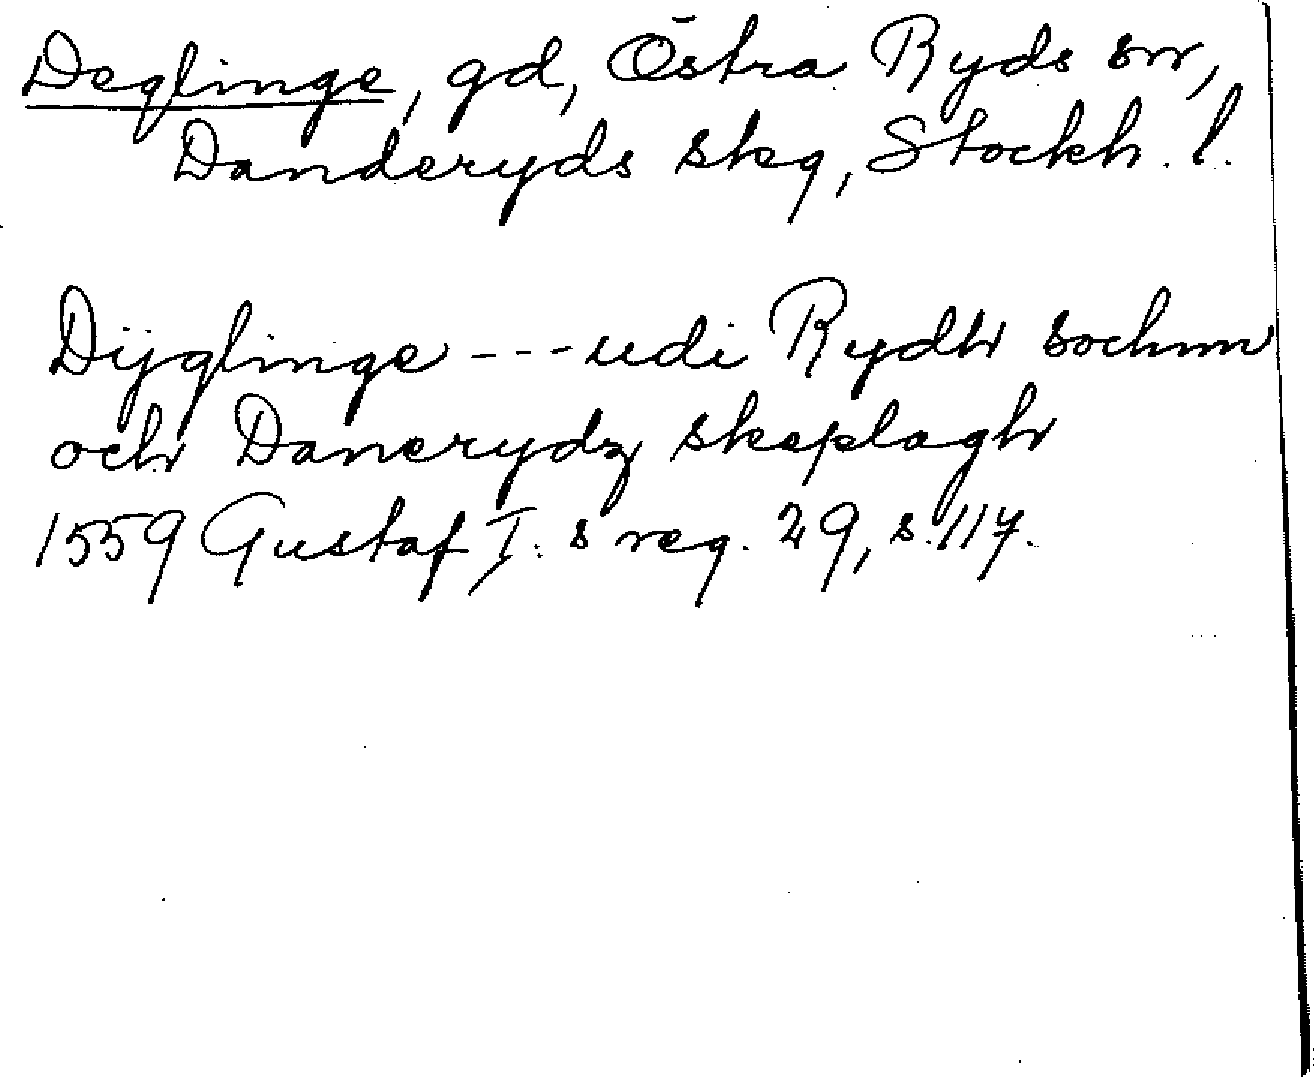 Deglinge, gd, Östra Ryds sn,
Danderyds skg, Stockh. l.
Dijglinge --- udi Rydh sochnn
och Danerydz skeplagh
1559 Gustaf I. s reg. 29, s. 117.